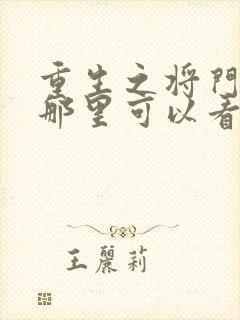 重生之将門
那里可以看
王麗莉